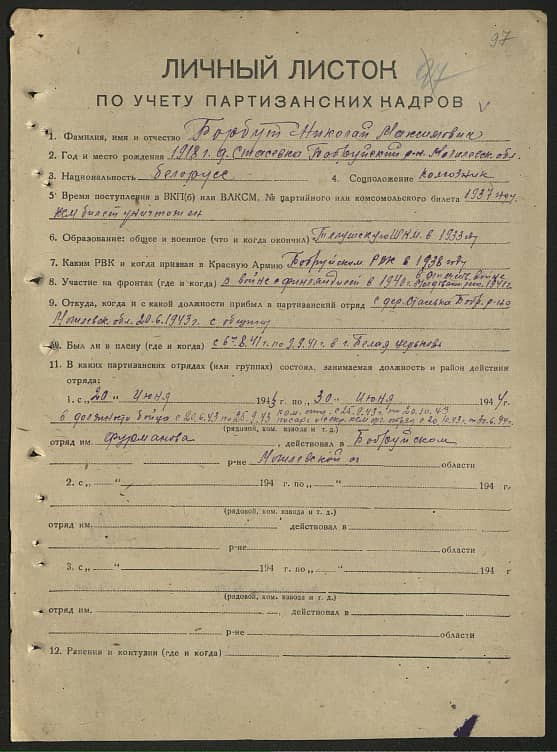 97
ЛИЧНЫЙ ЛИСТОК
ПО УЧЕТУ ПАРТИЗАНСКИХ КАДРОВ
1. Фамилия, имя и отчество Борбут Николай Максимович
2. Год и место рождения 1918 г. д. Стасевка Бобруйский р-н Могилевск. обл.
3. Национальность белорусс 4. Соцположение колхозник
5 Время поступления в ВКП(б) или ВЛКСМ, № партийного или комсомольского билета 1937 году.
КСМ билет уничтожен
6. Образование: общее и военное (что и когда окончил) Телушскую ШКМ в 1933 г.
7. Каким РВК и когда призван в Красную Армию Бобруйским РВК в 1938 году
8. Участие на фронтах (где и когда) в войне с финляндией в 1940 г. в отечеств. войне
9. Откуда, когда и с какой должности прибыл в партизанский отряд с дер. Бобр. р-на
Могилевск. обл. 20.6.1943 г. с
10. Был ли в плену (где и когда) с 6.8.41 г. по 9.9.41 г. в г. Белая церковь
11. В каких партизанских отрядах (или группах) состоял, занимаемая должность и район действия
отряда:
1. с „20“ июня 1943 г. по „30“ июня 1944 г.
в должности бойца с 20.6.43 по 25.9.43 ком. отд. с 25.9.43 г. по 20.10.43
(рядовой, ком. взвода и т. д.) с 20.10.43 г. по 30.6.44 г.
отряд им. Фурманова, действовал в Бобруйском
р-не Могилевской области
2. с „ “ 194 г. по „ “ 194 г
(рядовой, ком. взвода и т. д.)
отряд им. действовал в
р-не области
3. с „ “ 194 г. по „ “ 194 г
(рядовой, ком. взвода и т. д.)
отряд им. действовал в
р-не области
12. Ранения и контузии (где и когда)